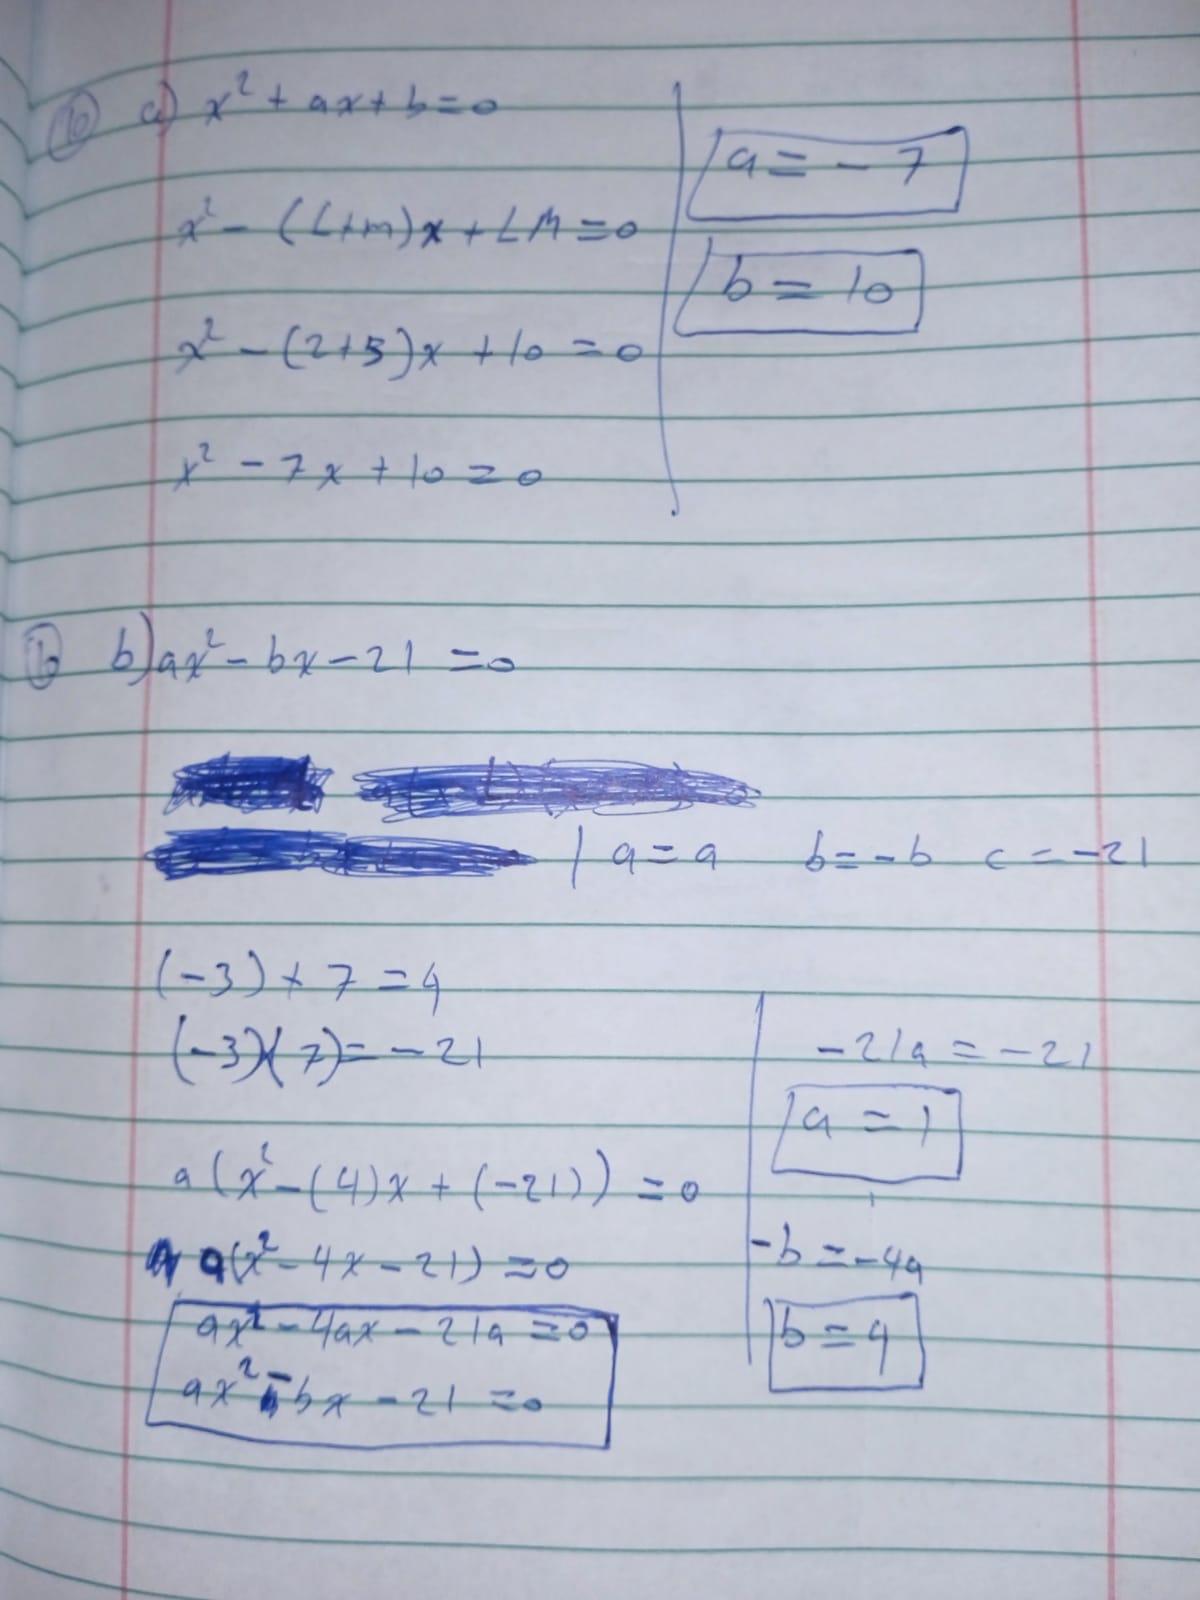 16 a) x² + ax + b = 0
x² - (L+m)x + LM = 0
x² - (2+5)x + 10 = 0
x² - 7x + 10 = 0
a = - 7
b = 10
16 b) ax² - bx - 21 = 0
a = a b = -b c = -21
(-3) + 7 = 4
(-3)(7) = -21
a(x² - (4)x + (-21)) = 0
a(x² - 4x - 21) = 0
ax² - 4ax - 21a = 0
ax² - bx - 21 = 0
-21a = -21
a = 1
-b = -4a
b = 4